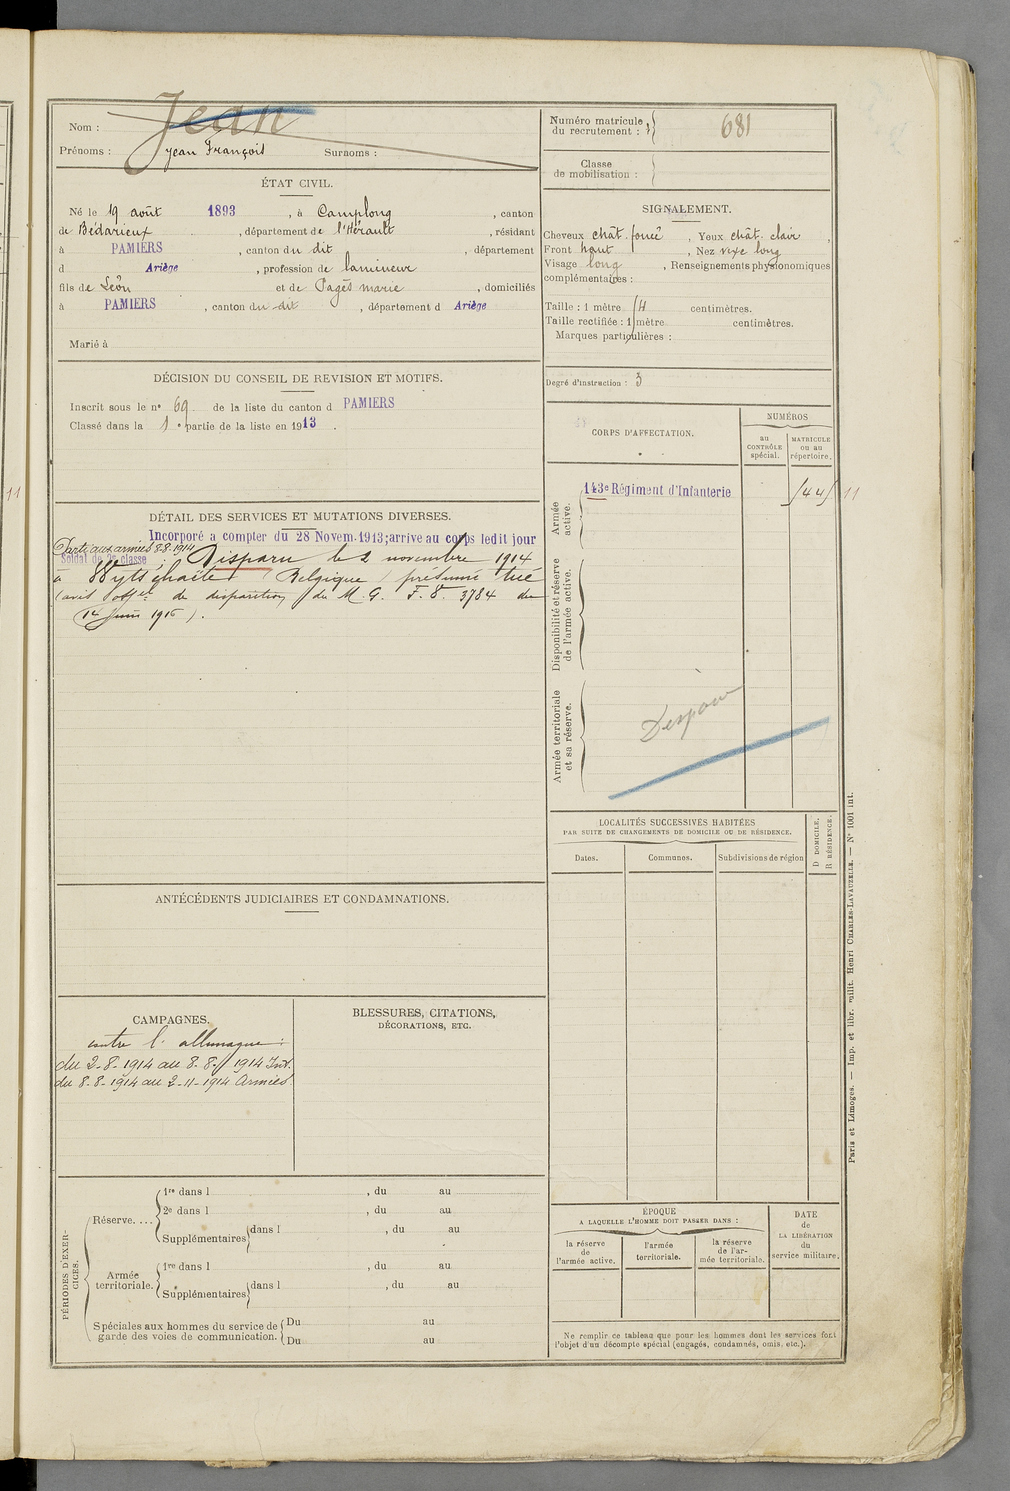 Nom : Jean
Prénoms : Jean François Surnoms :
Numéro matricule du recrutement : 681
Classe de mobilisation :
ÉTAT CIVIL.
Né le 19 août 1893, à Camplong, canton
de Bédarieux, département de l'Hérault, résidant
à PAMIERS, canton du dit, département
d Ariège, profession de lamineur
fils de Léon et de Pagès marie, domiciliés
à PAMIERS, canton du dit, département d Ariège
Marié à
SIGNALEMENT.
Cheveux chât. foncé, Yeux chât. clair,
Front haut, Nez vexe long
Visage long, Renseignements physionomiques
complémentaires :
Taille : 1 mètre centimètres.
Taille rectifiée : 1 mètre centimètres.
Marques particulières :
Degré d'instruction : 3
DÉCISION DU CONSEIL DE REVISION ET MOTIFS.
Inscrit sous le n° 69 de la liste du canton d PAMIERS
Classé dans la 1e partie de la liste en 1913.
CORPS D'AFFECTATION.
NUMÉROS
au CONTRÔLE spécial.
MATRICULE ou au répertoire.
Armée active.
143e Régiment d'Infanterie
11
11
Disponibilité et réserve de l'armée active.
Armée territoriale et sa réserve.
DÉTAIL DES SERVICES ET MUTATIONS DIVERSES.
Incorporé a compter du 28 Novem. 1913; arrive au corps ledit jour
Parti aux armées 8-8-1914
Soldat de 2e classe Disparu le 2 novembre 1914
à Wytschaëte (Belgique) présumé tué
(avis offel de disparition du M. G. F. 8. 3784 du
14 Juin 1916).
LOCALITÉS SUCCESSIVES HABITÉES
PAR SUITE DE CHANGEMENTS DE DOMICILE OU DE RÉSIDENCE.
D DOMICILE.
R RÉSIDENCE.
Dates. Communes. Subdivisions de région
ANTÉCÉDENTS JUDICIAIRES ET CONDAMNATIONS.
CAMPAGNES.
contre l'allemagne :
du 2-8-1914 au 8-8-1914 Int.
du 8-8-1914 au 2-11-1914 Armées
BLESSURES, CITATIONS,
DÉCORATIONS, ETC.
PÉRIODES D'EXERCICES.
Réserve....
1re dans l , du au
2e dans l , du au
Supplémentaires dans l , du au
Armée territoriale.
1re dans l , du au
Supplémentaires dans l , du au
Spéciales aux hommes du service de
garde des voies de communication.
Du au
Du au
ÉPOQUE
A LAQUELLE L'HOMME DOIT PASSER DANS :
la réserve de l'armée active.
l'armée territoriale.
la réserve de l'armée territoriale.
DATE de LA LIBÉRATION du service militaire.
Ne remplir ce tableau que pour les hommes dont les services font
l'objet d'un décompte spécial (engagés, condamnés, omis, etc.).
Paris et Limoges. — Imp. et libr. milit. Henri CHARLES-LAVAUZELLE. — N° 1001 int.